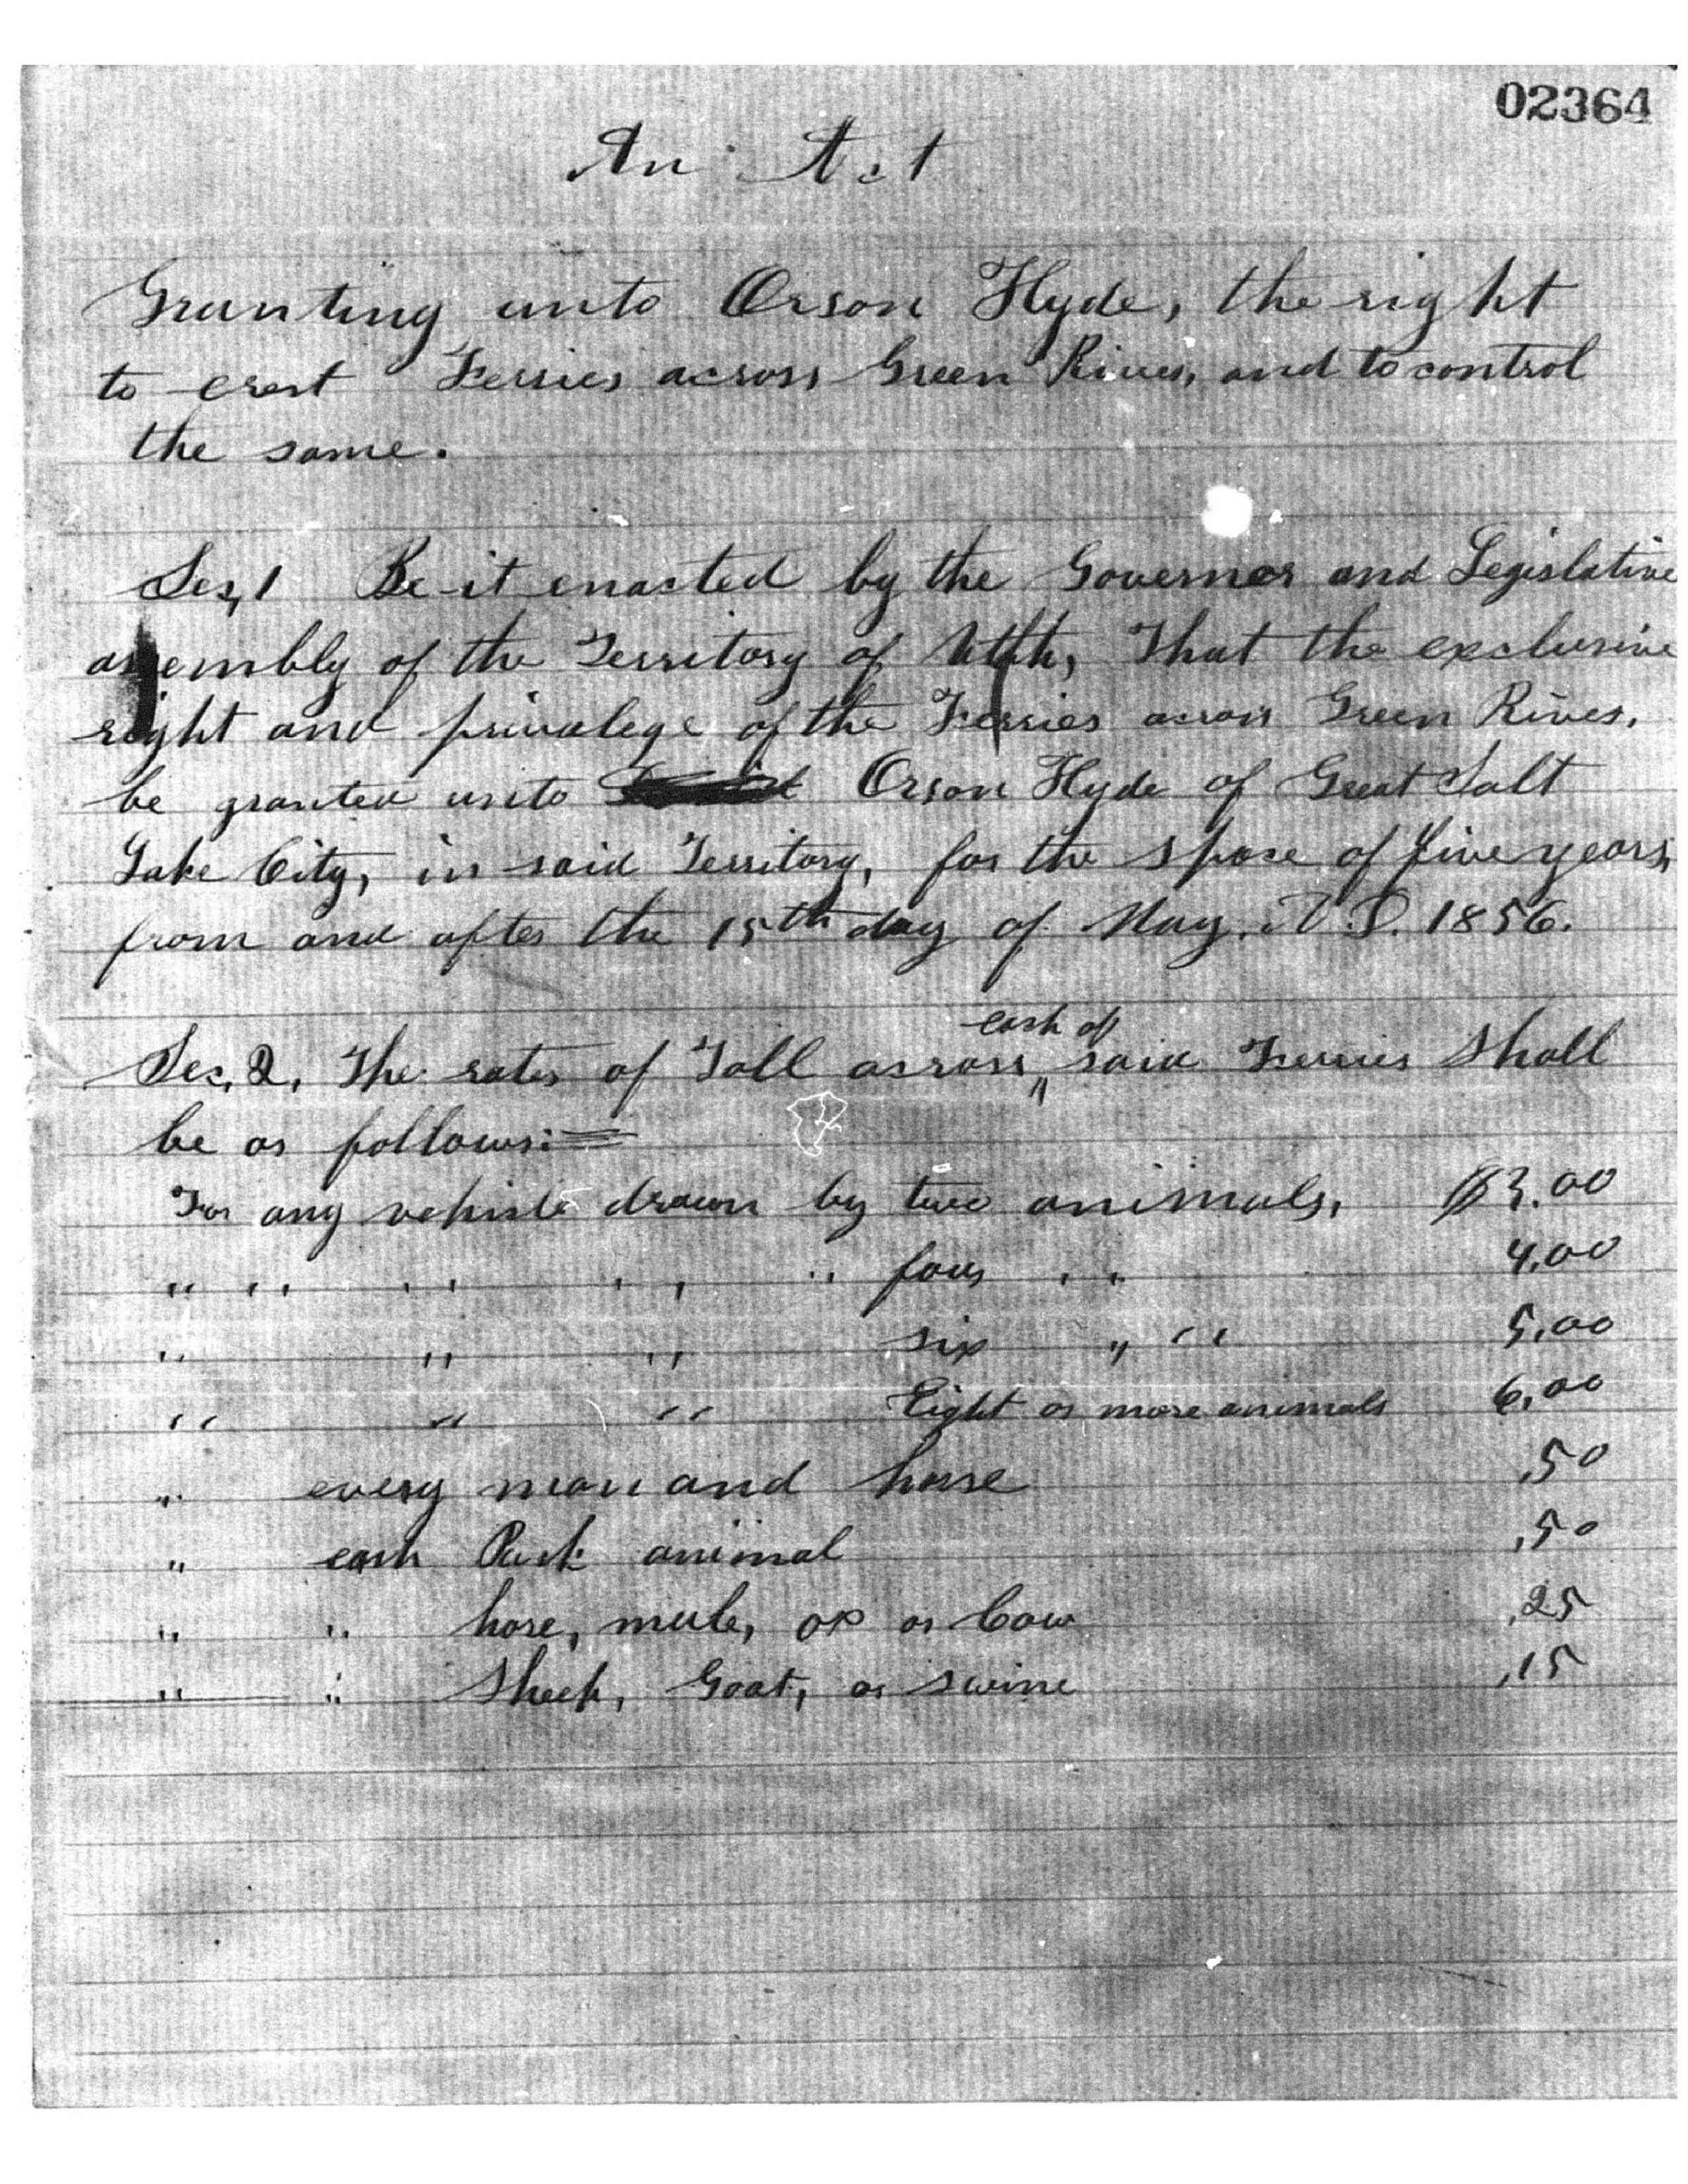 02364
An Act
Granting unto Orson Hyde, the right
to erect Ferries across Green River, and to control
the same.
Sec, 1 Be it enacted by the Governor and Legislative
assembly of the Territory of Utah, That the exclusive
right and privalege of the Ferries across Green River,
be granted unto Orson Hyde of Great Salt
Lake City, in said Territory, for the space of five years,
from and after the 15th day of May. A.D. 1856.
each of
Sec, 2, The rates of Toll across " said Ferries Shall
be as follows:=
For any vehicle drawn by two animals, $3.00
" " " " " four " 4,00
" " " six " " 5,00
" " " Eight or more animals 6,00
" every man and horse ,50
" each Pack animal ,50
" " horse, mule, ox or Cow ,25
" " Sheep, Goat, or swine ,15